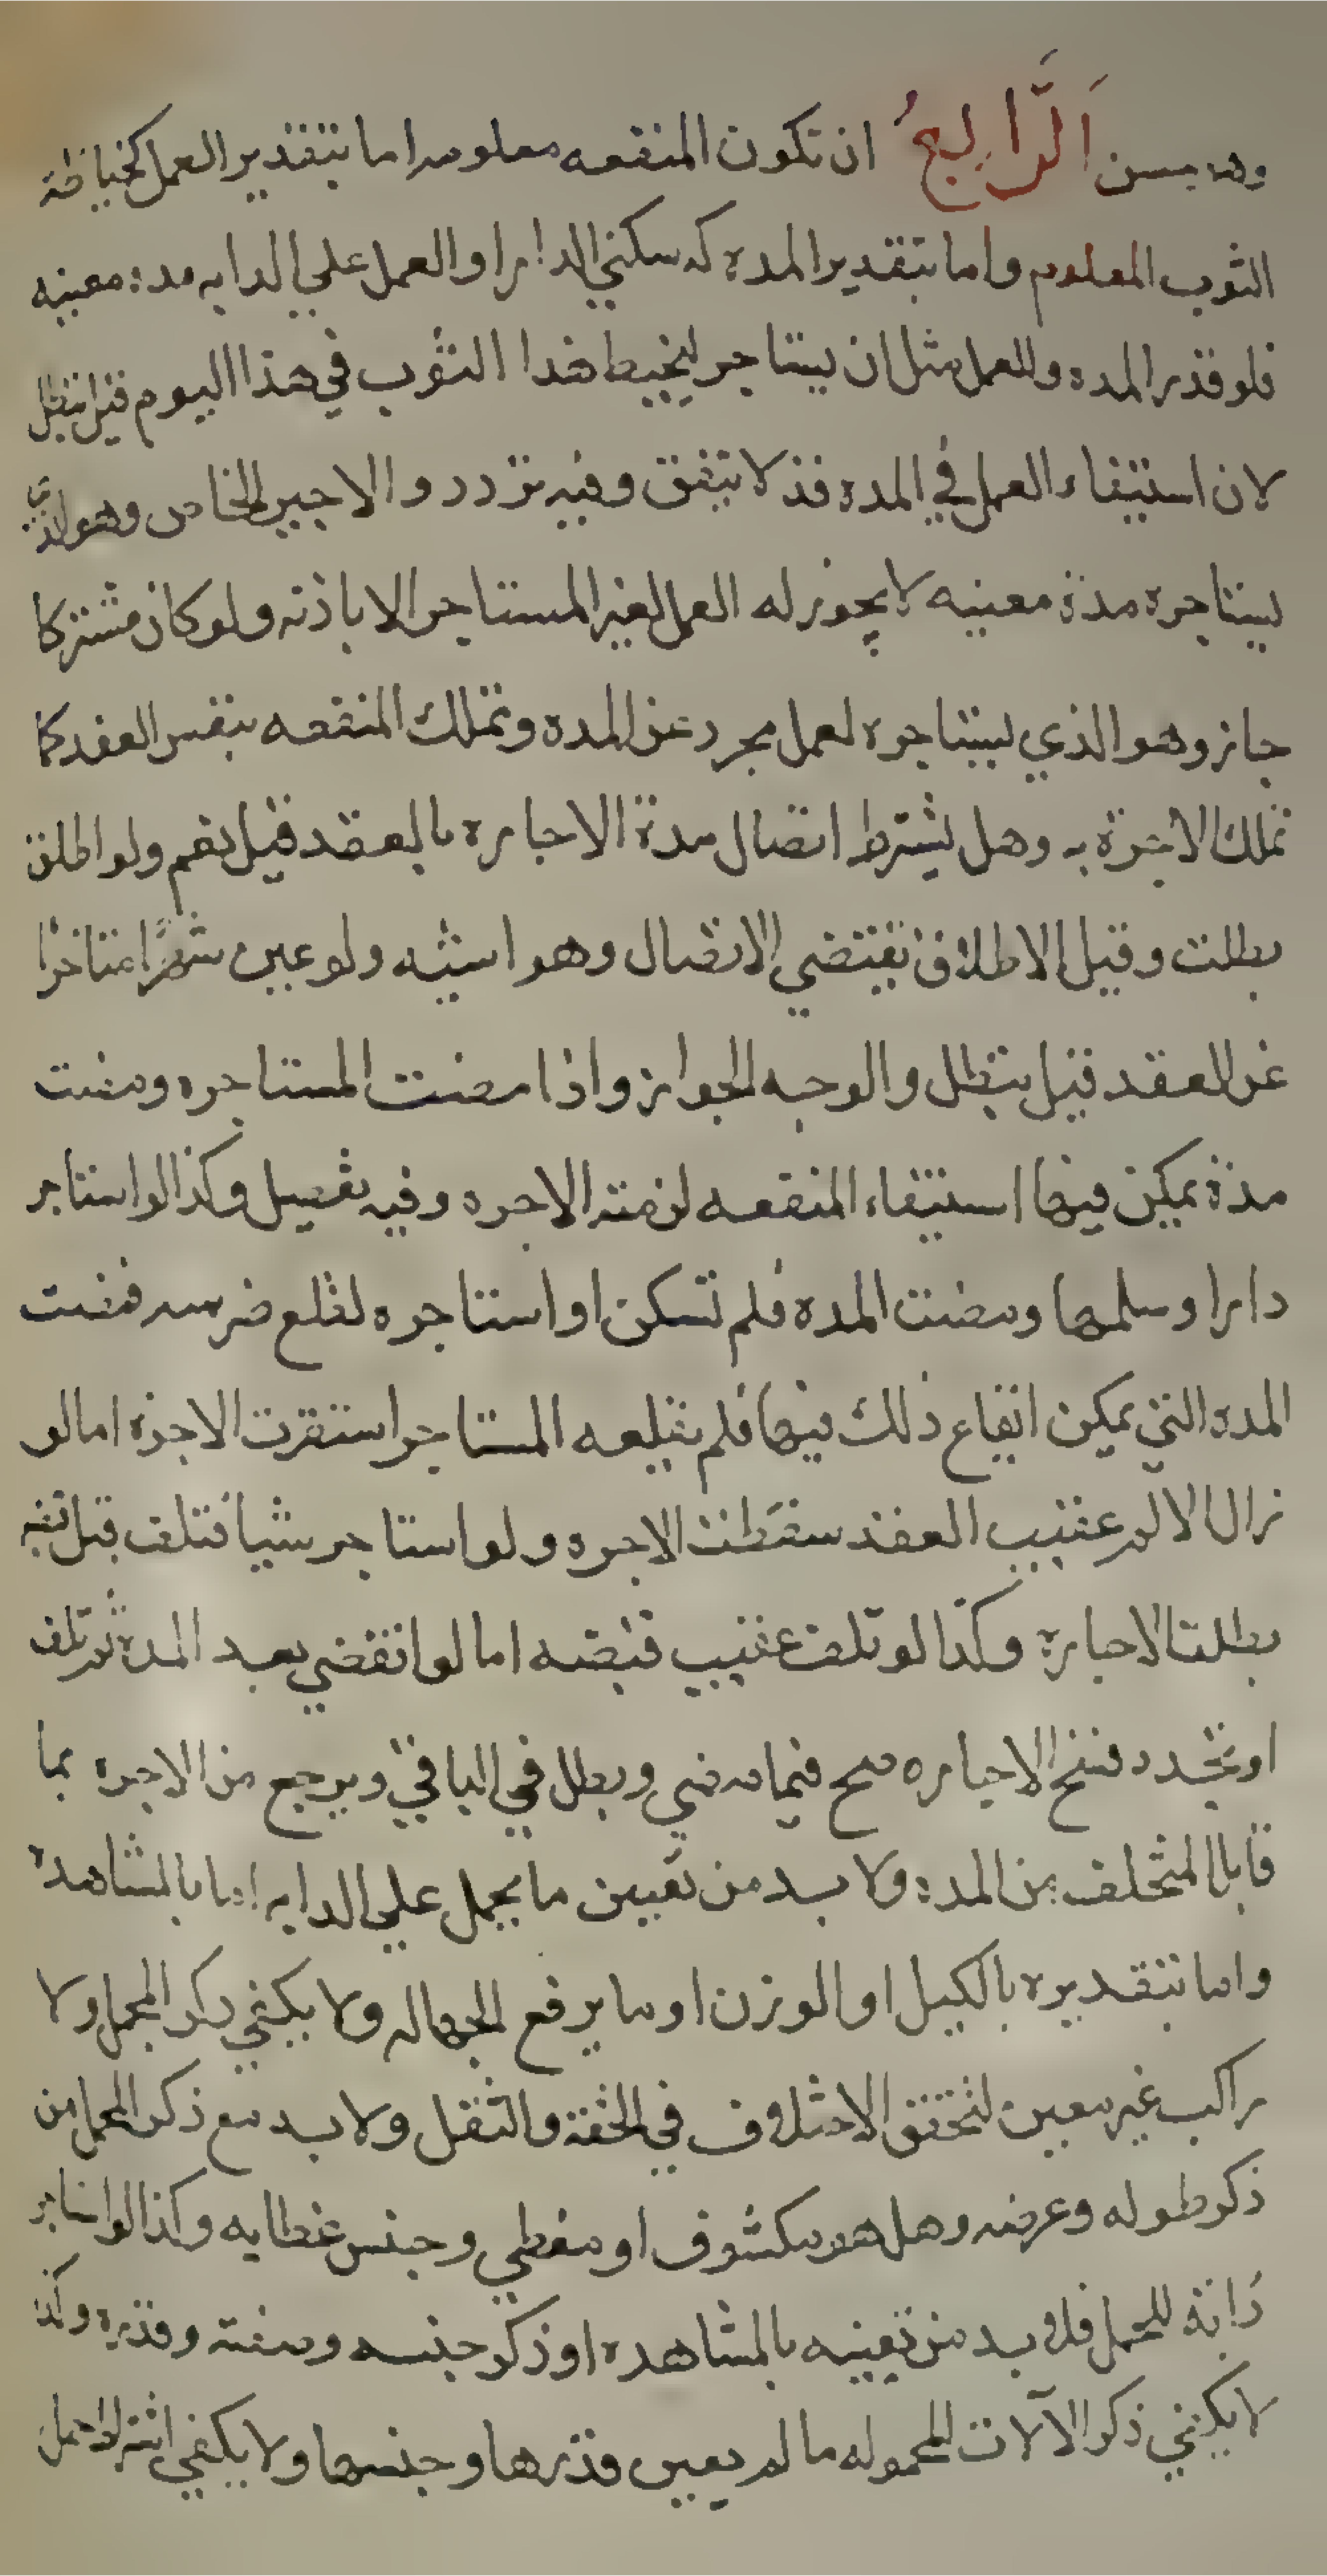 وهو حسن الرَّابعُ ان تكون المنفعه معلومه اما بتقدير العمل كخياطة
الثوب المعلوم واما بتقدير المدة كسكني الدار او العمل علي الدابه مدة معينه
فلو قدر المده والعمل مثل ان يستاجر ليخيط هذا الثوب في هذا اليوم قيل تبطل
لان استيفاء العمل في المدة قد لا يتفق وفيه تردد والاجير الخاص وهو الذي
يستاجره مدة معينه لا يجوز له العمل لغير المستاجر الا باذنه ولو كان مشتركا
جاز وهو الذي يستاجره لعمل مجرد عن المده وتملك المنفعه بنفس العقد كما
تملك الاجرة به وهل يشترط اتصال مدة الاجاره بالعقد قيل نعم ولو اطلق
بطلت وقيل الاطلاق يقتضي الاتصال وهو اشبه ولو عين شهرًا متاخرا
عن العقد قيل تبطل والوجه الجواز واذا مضت المستاجره ومضت
مدة يمكن فيها استيفاء المنفعه لزمته الاجره وفيه تفصيل وكذا لو استاجر
دارا وسلمها ومضت المده فلم تسكن او استاجره لقلع ضرسه فمضت
المده التي يمكن ايقاع ذلك فيها فلم يقلعه المستاجر استقرت الاجرة اما لو
زال الالم عقيب العقد سقطت الاجره ولو استاجر شيا فتلف قبل قبضه
بطلت الاجارة وكذا لو تلف عقيب قبضه اما لو انقضي بعد المدة ثم تلف
او تجدد فسخ الاجاره صح فيما مضي وبطل في الباقي ويرجع من الاجرة بما
قابل المتخلف من المدة ولا بد من تعيين ما يحمل علي الدابه اما بالمشاهدة
واما بتقديره بالكيل او الوزن او ما يرفع الجهاله ولا يكفي ذكر المحمل ولا
راكب غير معين لتحقق الاختلاف في الخفة والثقل ولا بد مع ذكر المحمل من
ذكر طوله وعرضه وهل هو مكشوف او مغطي وجنس غطايه وكذا لو استاجر
دابة للحمل فلا بد من تعيينه بالمشاهده او ذكر جنسه وصفته وقدره وكذا
لا يكفي ذكر الآلات المحموله ما لم يعين قدرها وجنسها ولا يكفي اشتراط حمل